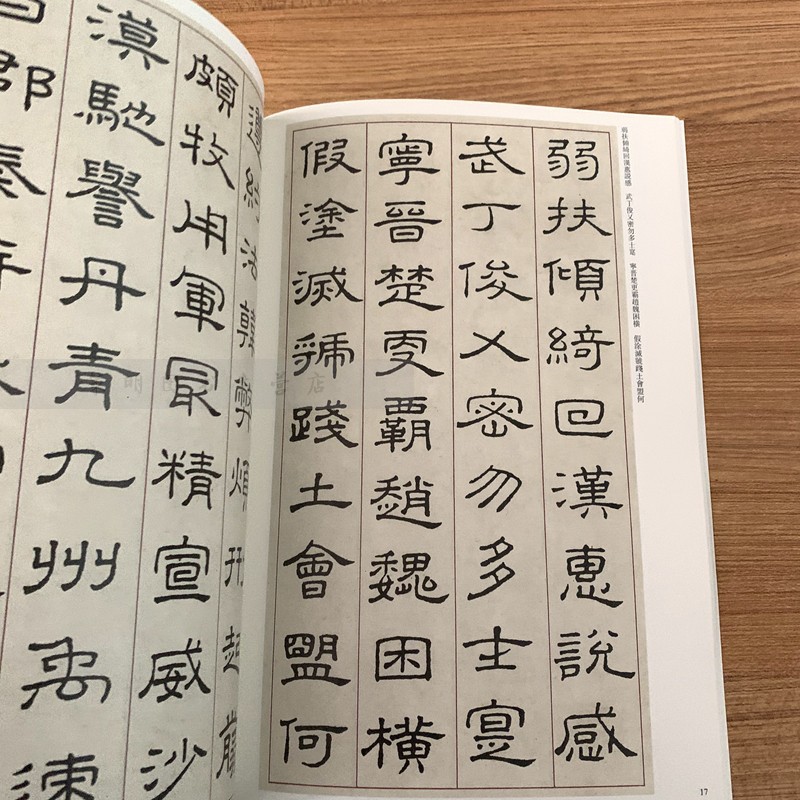 弱扶傾綺回漢惠説感　武丁俊乂密勿多士寔　寧晉楚更霸趙魏困橫　假涂滅虢踐土會盟何
弱扶傾綺回漢惠說感
武丁俊乂密勿多士寔
寧晉楚更霸趙魏困橫
假塗滅虢踐土會盟何
17
遵約法韓弊煩刑起翦
頗牧用軍最精宣威沙
漠馳譽丹青九州禹
百郡秦并